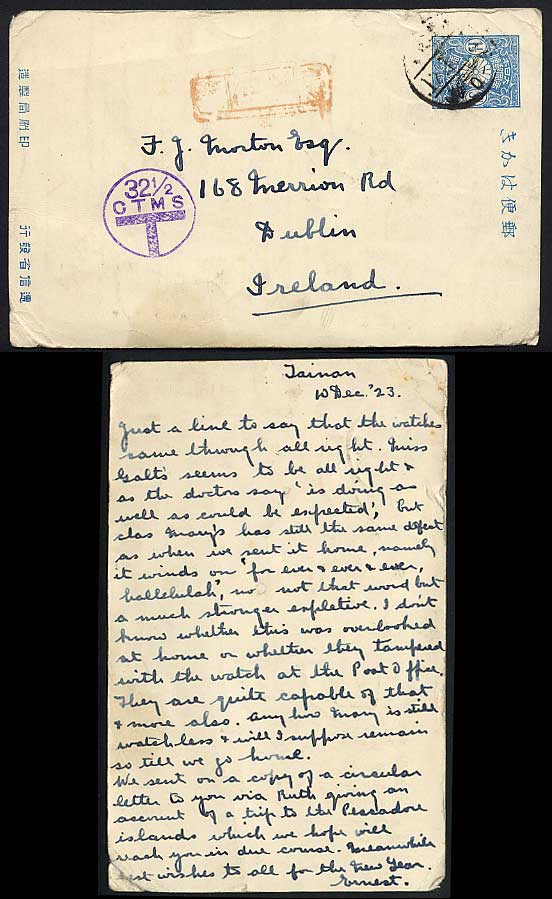 郵便はかき
印刷局製造
逓信省発行
F. J. Morton Esq.
168 Merrion Rd
Dublin
Ireland.
32 1/2
CTMS
T
Tainan
10 Dec. '23.
Just a line to say that the watches
came through all right. Miss
Galt's seems to be all right &
as the doctors say 'is doing as
well as could be expected', but
alas Mary's has still the same defect
as when we sent it home, namely
it winds on 'for ever & ever & ever,
hallelulah', no not that word but
a much stronger expletive. I don't
know whether this was overlooked
at home or whether they tampered
with the watch at the Post Office.
They are quite capable of that
& more also. Anyhow Mary is still
watchless & will I suppose remain
so till we go home.
We sent on a copy of a circular
letter to you via Ruth giving an
account of a trip to the Pescadore
islands which we hope will
reach you in due course. Meanwhile
best wishes to all for the New Year.
Ernest.